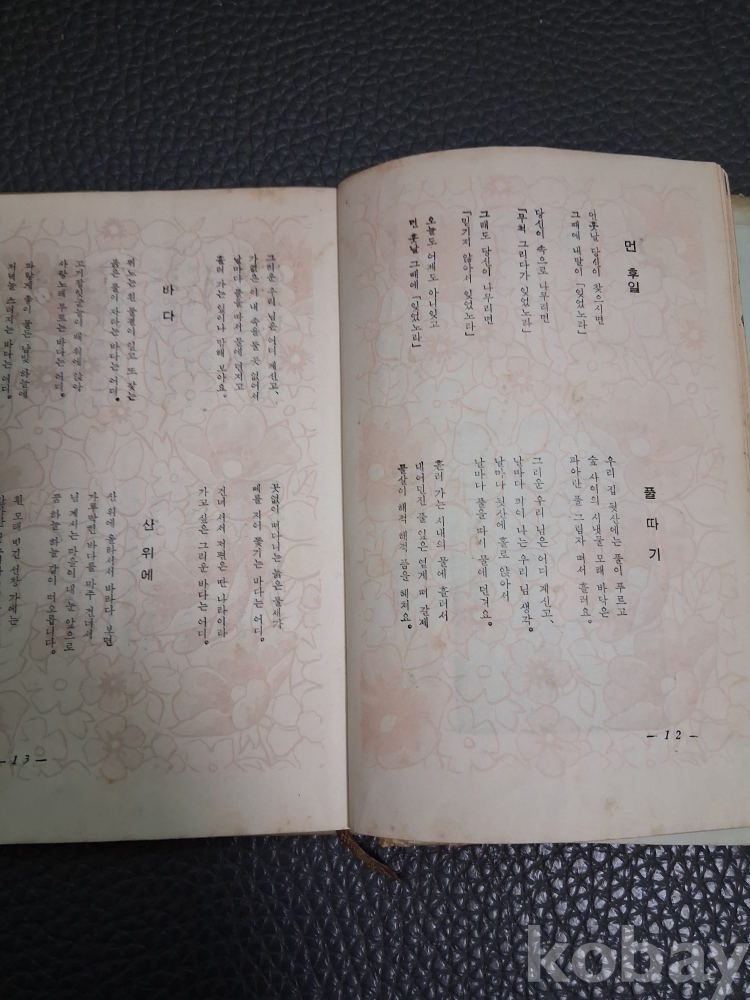 먼 후일
먼훗날 당신이 찾으시면
그때에 내말이 「잊었노라」
당신이 속으로 나무리면
「무척 그리다가 잊었노라」
그래도 당신이 나무리면
「믿기지 않아서 잊었노라」
오늘도 어제도 아니잊고
먼 훗날 그때에 「잊었노라」
풀따기
우리 집 뒷산에는 풀이 푸르고
숲 사이의 시냇물 모래 바닥은
파아란 풀 그림자 떠서 흘러요。
그리운 우리 님은 어디 계신고、
날마다 피어 나는 우리 님 생각。
날마다 뒷산에 홀로 앉아서
날마다 풀을 따서 물에 던져요。
흘러 가는 시내의 물에 흘러서
내어던진 풀 잎은 엷게 떠 갈제
물살이 해적 해적 품을 헤쳐요。
— 12 —
그리운 우리 님은 어디 계신고、
가엾은 이 내 속을 둘 곳 없어서
날마다 풀을 따서 물에 던지고
흘러 가는 잎이나 맘해 보아요。
바다
뛰노는 흰 물결이 일고 또 잦는
붉은 풀이 자라는 바다는 어디。
고기잡이꾼들이 배 위에 앉아
사랑노래 부르는 바다는 어디。
파랗게 좋이 물든 남빛 하늘에
저녁놀 스러지는 바다는 어디。
곳없이 떠다니는 늙은 물새가
떼를 지어 좇기는 바다는 어디。
건너 서서 저편은 딴 나라이라
가고 싶은 그리운 바다는 어디。
산 위에
산 위에 올라서서 바라다 보면
가로막힌 바다를 마주 건너서
님 계시는 마을이 내 눈 앞으로
꿈 하늘 하늘 같이 떠 오릅니다。
흰 모래 모래 비낀 선창 가에는
— 13 —
kobay